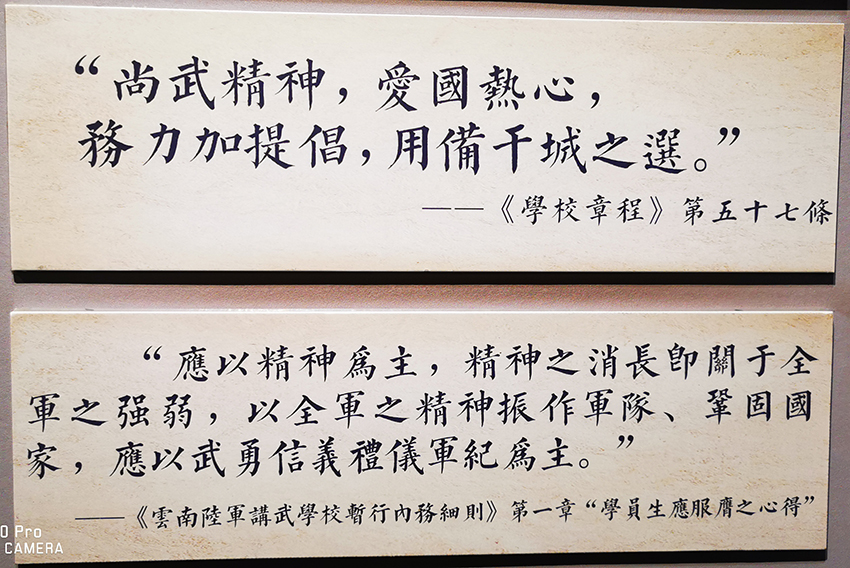 “尚武精神，愛國熱心，
務力加提倡，用備干城之選。”
——《學校章程》第五十七條
“應以精神爲主，精神之消長卽關于全
軍之强弱，以全軍之精神振作軍隊、鞏固國
家，應以武勇信義禮儀軍紀爲主。”
——《雲南陸軍講武學校暫行內務細則》第一章“學員生應服膺之心得”
0 Pro
CAMERA